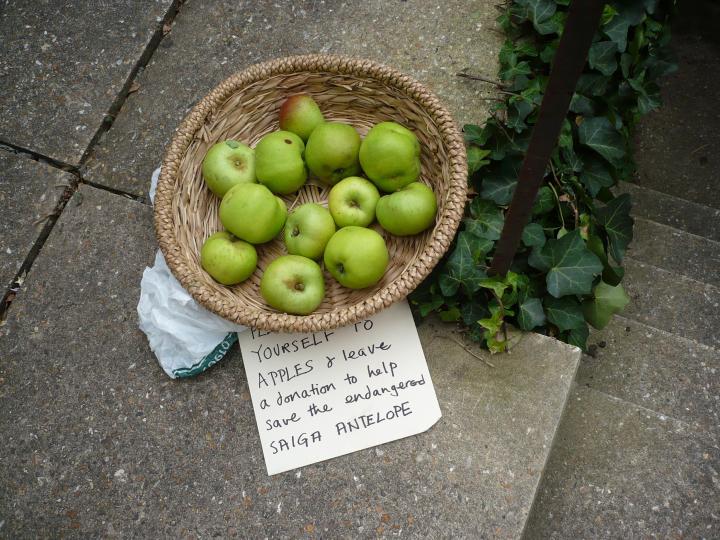 YOURSELF TO
APPLES & leave
a donation to help
save the endangered
SAIGA ANTELOPE